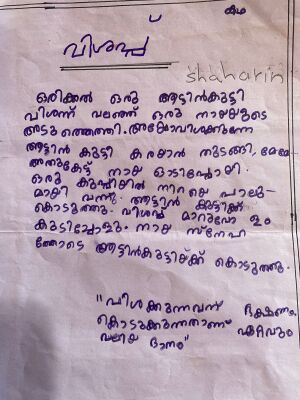 കഥ
വിശപ്പ്
shaharin
ഒരിക്കൽ ഒരു ആട്ടിൻകുട്ടി
വിശന്ന് വലഞ്ഞ് ഒരു നായയുടെ
അടുത്തെത്തി. അയ്യോവിശക്കുന്നേ
ആട്ടിൻ കുട്ടി കരയാൻ തുടങ്ങി, മേമേ
അതുകേട്ട് നായ ഓടിപ്പോയി.
ഒരു കുപ്പിയിൽ നിറയെ പാലു-
മായി വന്നു. ആട്ടിൻ കുട്ടിക്ക്
കൊടുത്തു. വിശപ്പ് മാറുവോ ളം
കുടിച്ചോളൂ. നായ സ്നേഹ
ത്തോടെ ആട്ടിൻകുട്ടിയ്ക്ക് കൊടുത്തു.
"വിശക്കുന്നവന് ഭക്ഷണം
കൊടുക്കുന്നതാണ് ഏറ്റവും
വലിയ ദാനം"